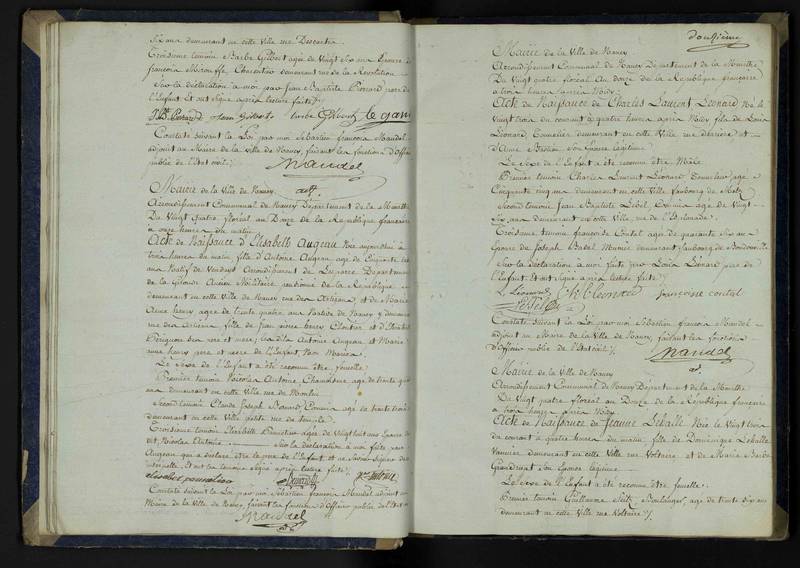 Six ans demeurant en cette Ville rue Descartes
Troisieme temoin Barbe Gilbert agée de Vingt Six ans Epouse de
françois Miroufle, Charpentier demeurant rue de la Revolution
Sur la déclaration à moi par Jean Baptiste Perard pere de
l'Enfant Et ont signé après lecture faite /.
JB Perard Jean Gilbert barbe Gilbert le gan
Constaté Suivant la Loi par moi Sébastien françois Mandel
adjoint au Maire de la ville de Nancy, faisant les fonctions d'Officier
public de l'Etat civil /.
Mandel
adjt.
Mairie de la Ville de Nancy.
Arrondissement Communal de Nancy Département de la Meurthe
Du Vingt quatre floréal an Douze de la République française
a onze heures du matin
Acte de Naissance d'Elisabeth Augeau Née aujourd'hui à
trois heures du matin, fille d'Antoine Augeau, age de Cinquante
ans Natif de Vendays Arrondissement de Lesparre Département
de la Gironde Ancien Militaire pensionné de la République
demeurant en cette Ville de Nancy rue des Artisans et de Marie
Anne henry agée de trente quatre ans Native de Nancy y demeurant
rue des Artisans, fille de Jean pierre henry Cloutier et d'
ses pere et mere, Antoine Augeau et Marie
anne henry pere et mere de l'Enfant, Non Mariés.
Le Sexe de l'Enfant a été reconnu être femelle.
Premier temoin Nicolas Antoine, Chamoiseur age de trente
ans demeurant en cette Ville rue de
Second temoin Claude Joseph Bonard Commis age de trente trois
demeurant en cette Ville petite rue du temple.
Troisieme temoin Elisabeth agée de Vingt huit ans Epouse
dit, Nicolas Antoine Sur la déclaration à moi faite par
Augeau qui a déclaré être le pere de l'Enfant et ne savoir Signer de
interpellé, Et ont les temoins Signé après lecture faite /.
elisabet Bonard Nas antoine
Constaté suivant la Loi par moi Sébastien françois Mandel adjoint au
Maire de la Ville de Nancy, faisant les fonctions d'Officier public de l'Etat
Mandel
adjt.
douzième
Mairie de la Ville de Nancy
Arrondissement Communal de Nancy Département de la Meurthe
Du Vingt quatre floréal an douze de la République française
a trois heures après Midy
Acte de Naissance de Charles Laurent Léonard Né le
vingt trois du courant à quatre heures après Midy fils de Louis
Léonard, Tonnelier demeurant en cette Ville rue derriere et
d'Anne Son Epouse légitime
Le Sexe de l'Enfant a été reconnu être Mâle
Premier temoin Charles Laurent Léonard Tonnelier age de
Cinquante cinq ans demeurant en cette Ville faubourg de Metz
Second temoin Jean Baptiste Lebel age de Vingt
Six ans demeurant en cette Ville, rue de l'Esplanade.
Troisieme temoin françoise Contal agée de quarante Six ans
Epouse de Joseph demeurant faubourg de Bondonville
Sur la déclaration à moi faite par Louis Léonard pere de
l'Enfant Et ont Signé après lecture faite /.
L Léonard Ch L Leonard françoise contal
Constaté suivant la Loi par moi Sébastien françois Mandel
adjoint au Maire de la Ville de Nancy, faisant les fonctions
d'Officier public de l'Etat civil /.
Mandel
adt.
Mairie de la Ville de Nancy
Arrondissement Communal de Nancy Département de la Meurthe
Du Vingt quatre floréal an Douze de la République française
à trois heures après Midy
Acte de Naissance de Jeanne Lehalle Née le Vingt trois
du courant à quatre heures du matin fille de Dominique Lehalle
Vannier demeurant en cette Ville rue Voltaire et de Marie Barbe
Son Epouse légitime
Le Sexe de l'Enfant a été reconnu être femelle.
Premier temoin Guillaume Boulanger, age de trente Six ans
demeurant en cette Ville rue Voltaire /.